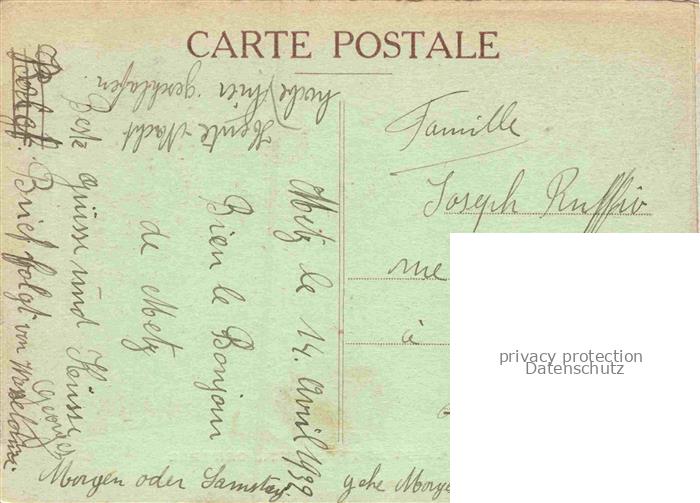 CARTE POSTALE
Metz le 14. Avril 1939
Bien le Bonjour
de Metz
Beste Grüsse und Küsse
Georges
Brief folgt von
Heute Nacht
habe hier geschlafen.
Morgen oder Samstag gehe
Famille
Joseph Ruffio
rue
à
privacy protection
Datenschutz